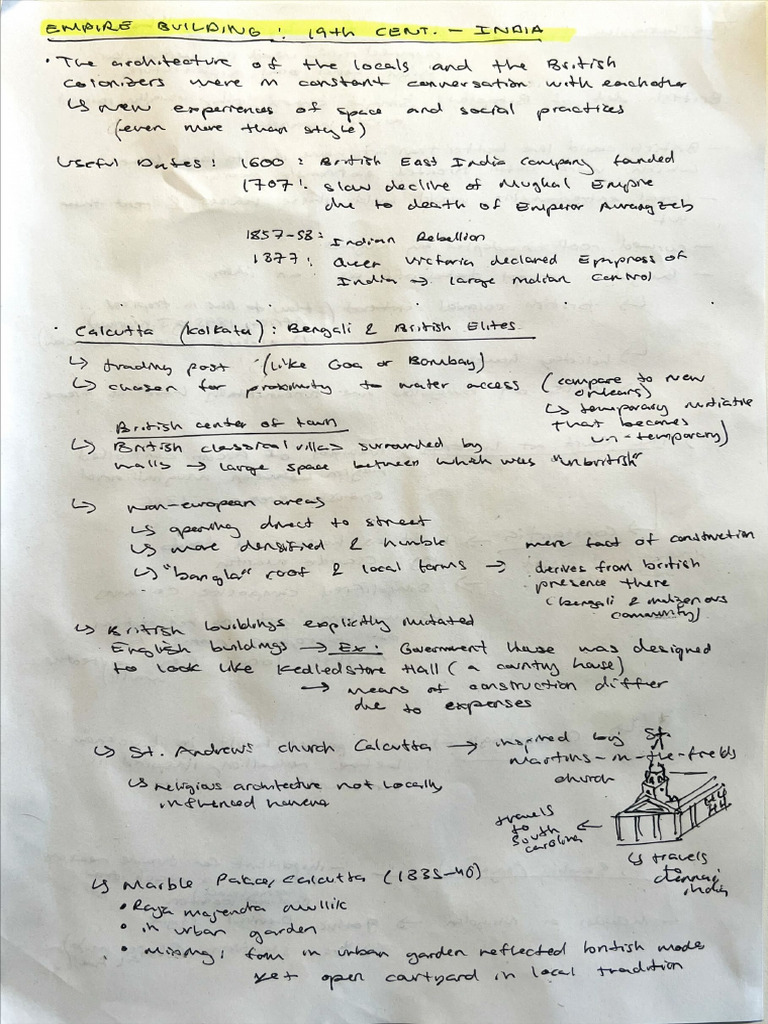 EMPIRE BUILDING: 19th CENT. – INDIA
• The architecture of the locals and the British
colonizers were in constant conversation with eachother
↳ new experiences of space and social practices
(even more than style)
Useful Dates: 1600: British East India Company founded
1707: slow decline of Mughal Empire
due to death of Emperor Aurangzeb
1857-58: Indian Rebellion
1877: Queen Victoria declared Empress of
India → large indian control
• Calcutta (Kolkata): Bengali & British Elites
↳ trading post (like Goa or Bombay)
↳ chosen for proximity to water access (compare to New
Orleans)
↳ temporary initiative
that becomes
un-temporary)
British center of town
↳ British classical villas surrounded by
walls → large space between which was "unbritish"
↳ non-european areas
↳ opening direct to street
↳ more densified & humble
↳ "bangla" roof & local forms → mere fact of construction
derives from british
presence there
(bengali & indigenous
community)
↳ British buildings explicitly imitated
English buildings → Ex: Government House was designed
to look like Kedledstore Hall (a country house)
→ means of construction differ
due to expenses
↳ St. Andrew's church Calcutta → inspired by St.
Martins-in-the-fields
church
↳ religious architecture not locally
influenced
travels
to
South
Carolina
↳ travels
to
chennai
india
↳ Marble Palace, Calcutta (1835-40)
• Raja majendra mullik
• in urban garden
• Mixing: form in urban garden reflected british mode
yet open courtyard in local tradition